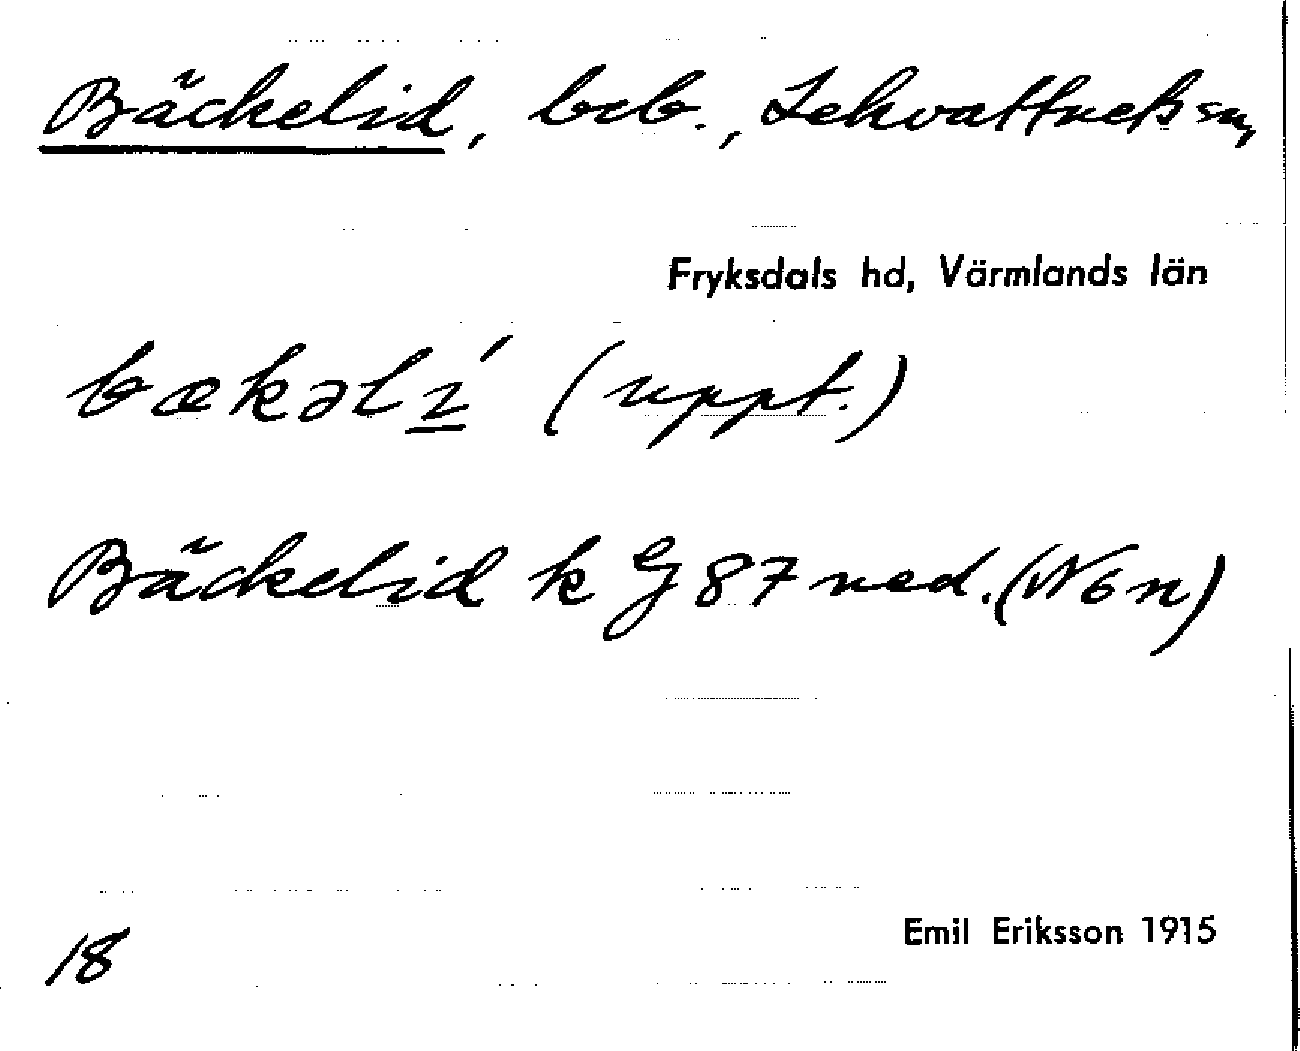 Bäckelid, beb., Lekvattnets sn,
Fryksdals hd, Värmlands län
bækəlí (uppt.)
Bäckelid k G 87 ned. (N6n)
18
Emil Eriksson 1915